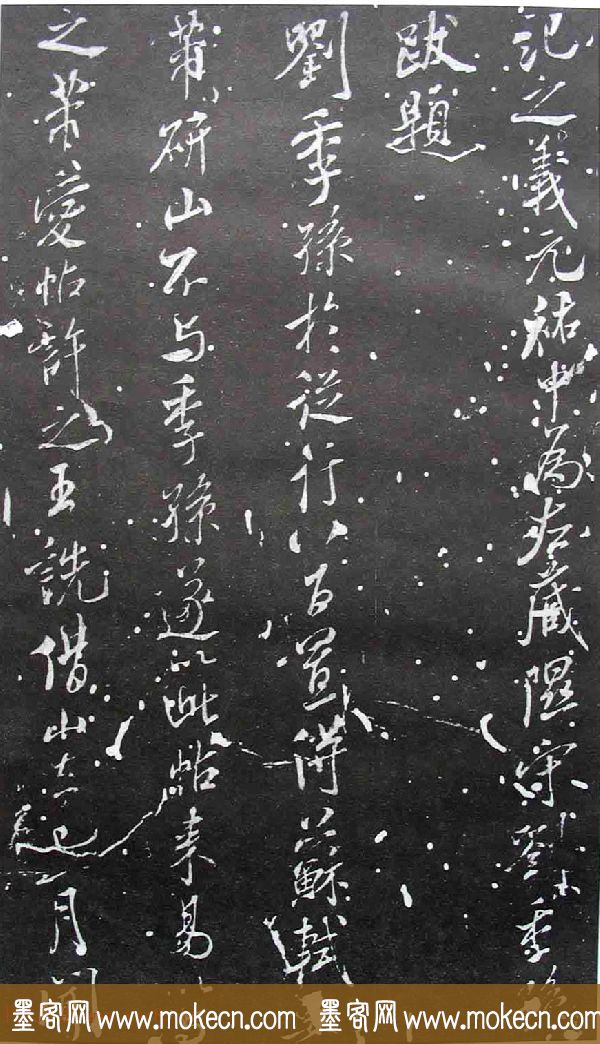 記之義元祐中為左藏隰守劉季孫
跋題
劉季孫於從行以百置得蘇軾
芾研山不与季孫遂以此帖来易
之芾愛帖許之王詵借山去已一月
墨客网 www.mokecn.com 墨客网 www.mokecn.com